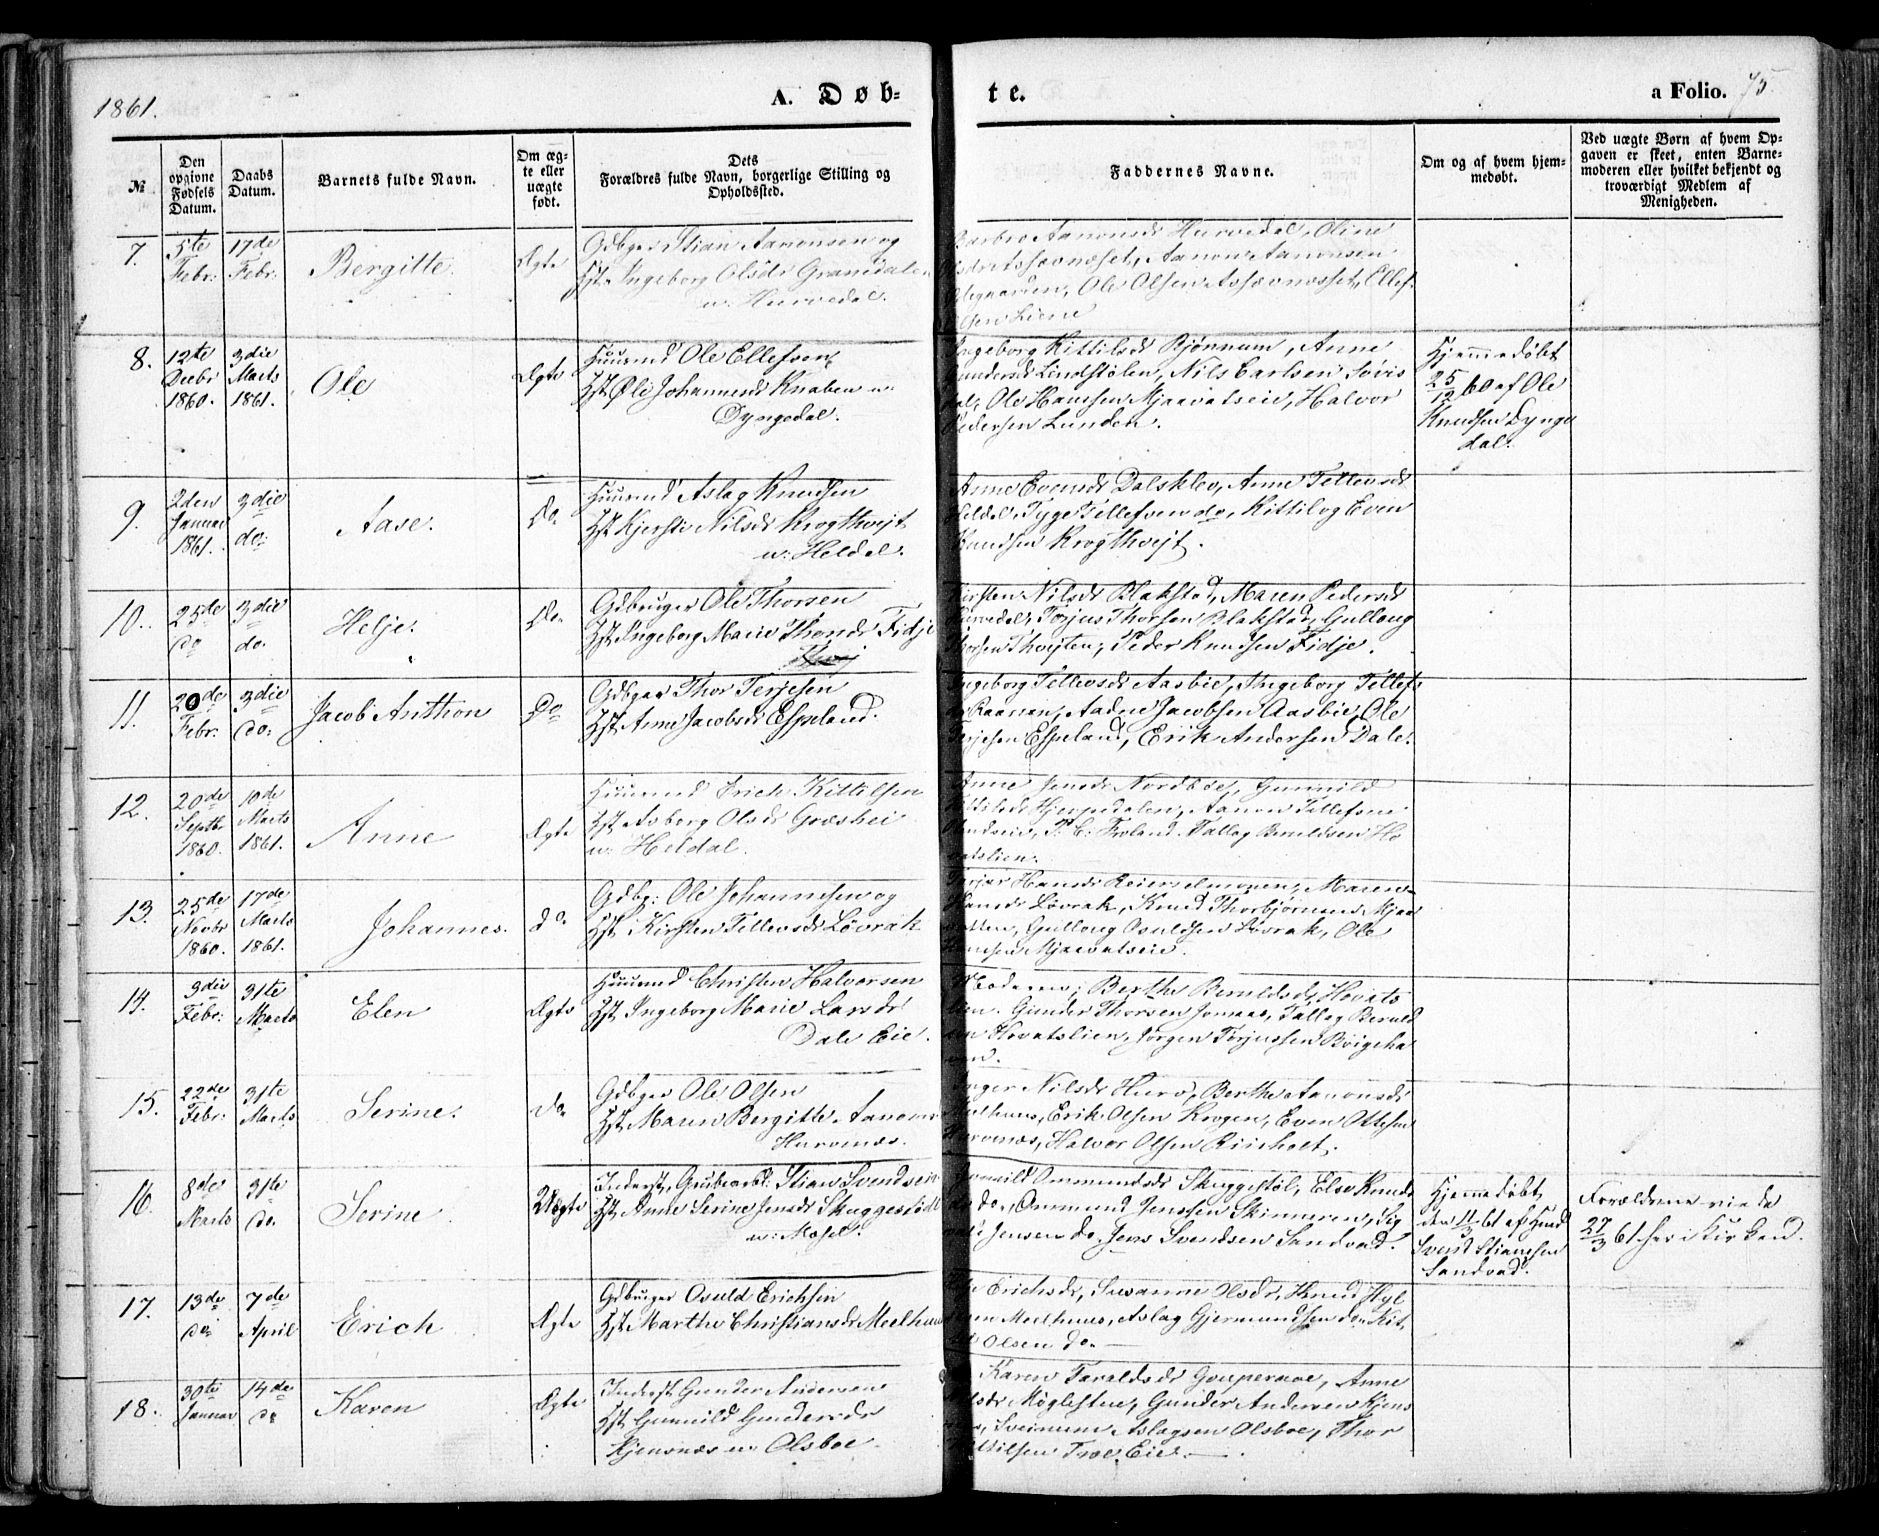 1861.
A. Døb-
te.
a Folio. 75
№
Den opgivne Fødsels Datum.
Daabs Datum.
Barnets fulde Navn.
Om ægte eller uægte født.
Dets Forældres fulde Navn, borgerlige Stilling og Opholdssted.
Faddernes Navne.
Om og af hvem hjemmedøbt.
Ved uægte Børn af hvem Opgaven er skeet, enten Barnemoderen eller hvilket bekjendt og troværdigt Medlem af Menigheden.
7.
5te Febr:
17de Febr:
Bergitte.
Ægte
Gdbger Stian Aanonsen og
Hst. Ingeborg Olsdr Grandalen
u: Hurvedal.
Barbro Aanonsdr Hurvedal, Oline
Aanon Aanonsen
Ole Olsen
8.
12te Decbr 1860.
3die Marts 1861.
Ole
Ægte
Huusmd Ole Ellefsen
Hst. Øli Johannesdr Knaben u:
Dyngedal.
Ingeborg Kittilsdr Bjønnum, Anne
Gundersdr Lindstølen, Nils Carlsen
Ole Hansen Mjaavatseie, Halvor
Pedersen Lunden.
Hjemmedøbt
25/12 60 af Ole
Knudsen Dynge
dal.
9.
2den Januar 1861.
3die do:
Aase.
Do.
Huusmd Aslag Knudsen
Hst. Kjersti Nilsdr Krogthveit
u: Heldal.
Anne Evensdr Dalsklev, Anne Tellevsdr
Heldal, Tyge Tellefsen do, Kittil og Even
Knudsen Krogthvejt.
10.
25de do
3die do.
Helje.
Do.
Gdbruger Ole Thorsen
Hst. Ingeborg Marie Thorsdr Fidje
Kirsten Nilsdr Blakstad, Maren Pedersdr
Hurvedal, Torjus Thorsen Blakstad, Gulloug
Thorsen Thveiten, Peder Knudsen Fidje.
11.
20de Febr:
3die do:
Jacob Anthon
Do
Gdbger Thor Terjesen
Hst. Anne Jacobsdr Espeland.
Ingeborg Tellevsdr Aasbie, Ingeborg Tellefs
Raanan, Aadne Jacobsen Aasbie, Ole
Terjesen Espeland, Erik Andersen Dale.
12.
20de Septbr 1860.
10de Marts 1861.
Anne
Ægte
Huusmd Erich Kittilsen
Hst. Asberg Olsdr Græshei
u: Heldal.
Anne Jensdr Nordbøe, Gunnild
Aanon Tellefsen
Froland. Tallag Beruldsen Ho
vatslien.
13.
25de Novbr 1860.
17de Marts 1861.
Johannes.
do.
Gdbr: Ole Johannesen og
Hst. Kirsten Tellevsdr Løvrak
Hansdr Reierselmoen, Maren
Hansdr Løvrak, Knud Thorbjørnsen Mjaa
vatten, Gulloug Osuldsen Løvrak, Ole
Hansen Mjaavatseie.
14.
3die Febr:
31te Marts
Elen
Ægte
Huusmd Christen Halvorsen
Hst. Ingeborg Marie Larsdr
Dale Eie.
Moderen, Berthe Beruldsdr Hovats
lien. Gunder Thorsen Jomaas, Tallag Beruld
sen Hovatslien, Jørgen Torjussen
15.
22de Febr:
31te Marts
Serine.
do.
Gdbger Ole Olsen
Hst. Maren Bergitte Aanons
Hurvenæs.
Inger Nilsdr Hurv, Berthe Aanonsdr
Meelhuus, Erik Olsen Krogen, Even Ottesen
Hurvenæs, Halvor Olsen Riisholt.
16.
8de Marts
31te do.
Serine
Uægte
Inderst, Grubearb: Stian Svendsen
Hst. Anne Serine Jensdr Skuggestødl
u: Mosel.
Gunnild Ommundsdr Skuggestøl, Else Knuds
dr do., Ommund Jenssen
Jensen do. Jens Svendsen Sandvad.
Hjemmedøbt
den 11/3 61 af Huusmd
Svend Stiansen
Sandvad.
Forældrene viede
27/3 61 her i Kirken.
17.
13de do:
7de April
Erich
Ægte
Gdbruger Osuld Erichsen
Hst. Marthe Christiansdr Meelhuus
Erichsdr, Susanne Olsdr, Knud
Meelhuus, Aslag Gjermundsen do. Kit
til Olsen do.
18.
30te Januar
14de do
Karen
Ægte
Inderst Gunder Andersen
Hst. Gunnild Gundersdr
Kjensnæs u: Olsboe.
Karen Taraldsdr Anne
Møglestue, Gunder Andersen Kjens
næs, Sveinum Aslagsen Olsboe, Thor
Kittilsen Troe Eie.